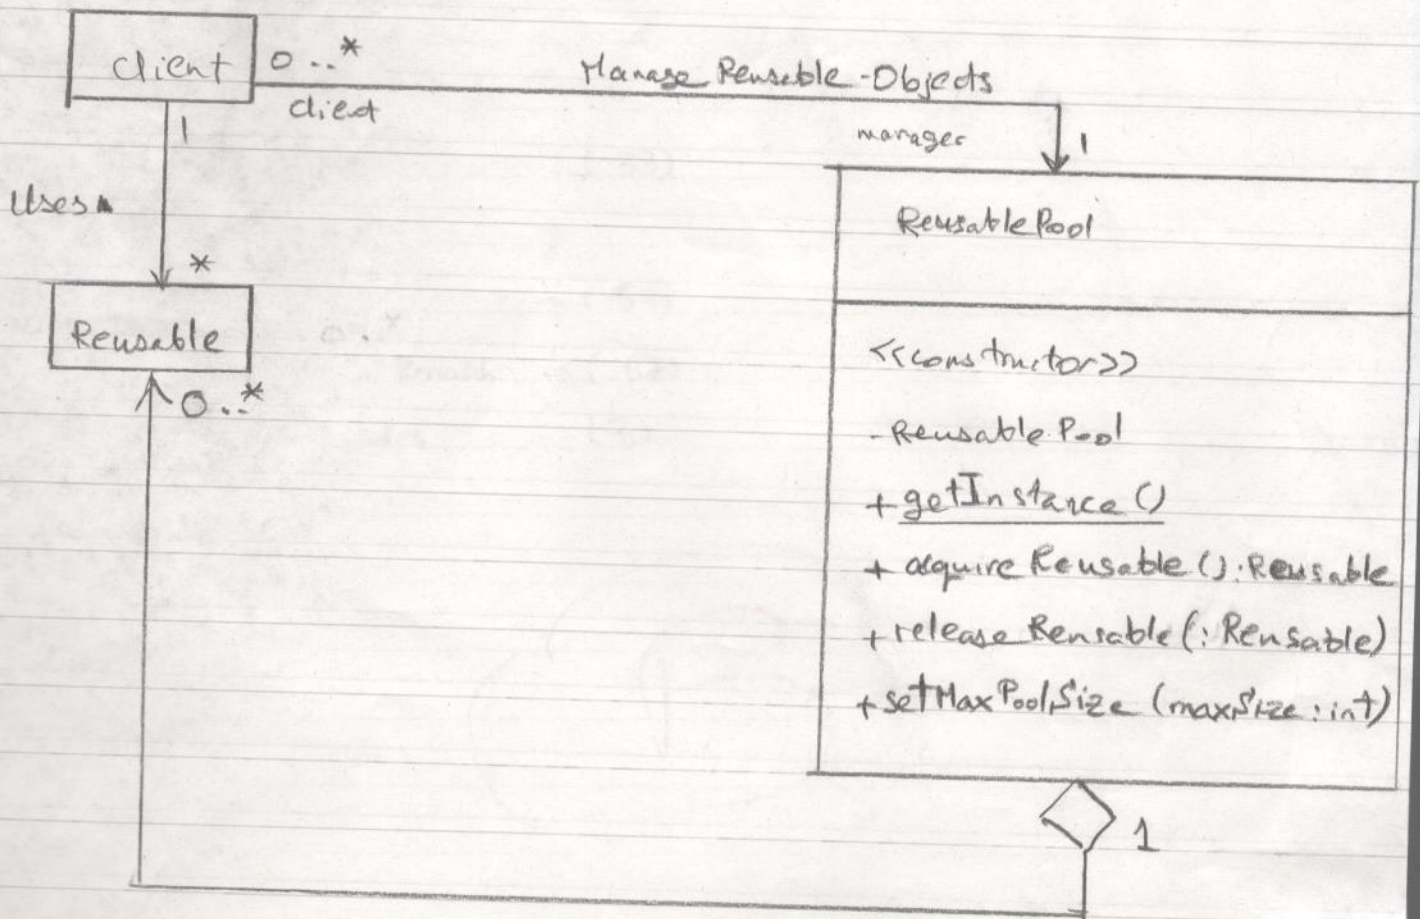 Client
0..*
Manage Reusable-Objects
client
1
manager
1
Uses
ReusablePool
*
Reusable
0..*
<<constructor>>
-ReusablePool
+getInstance()
+acquireReusable():Reusable
+releaseReusable(:Reusable)
+setMaxPoolSize(maxSize:int)
1